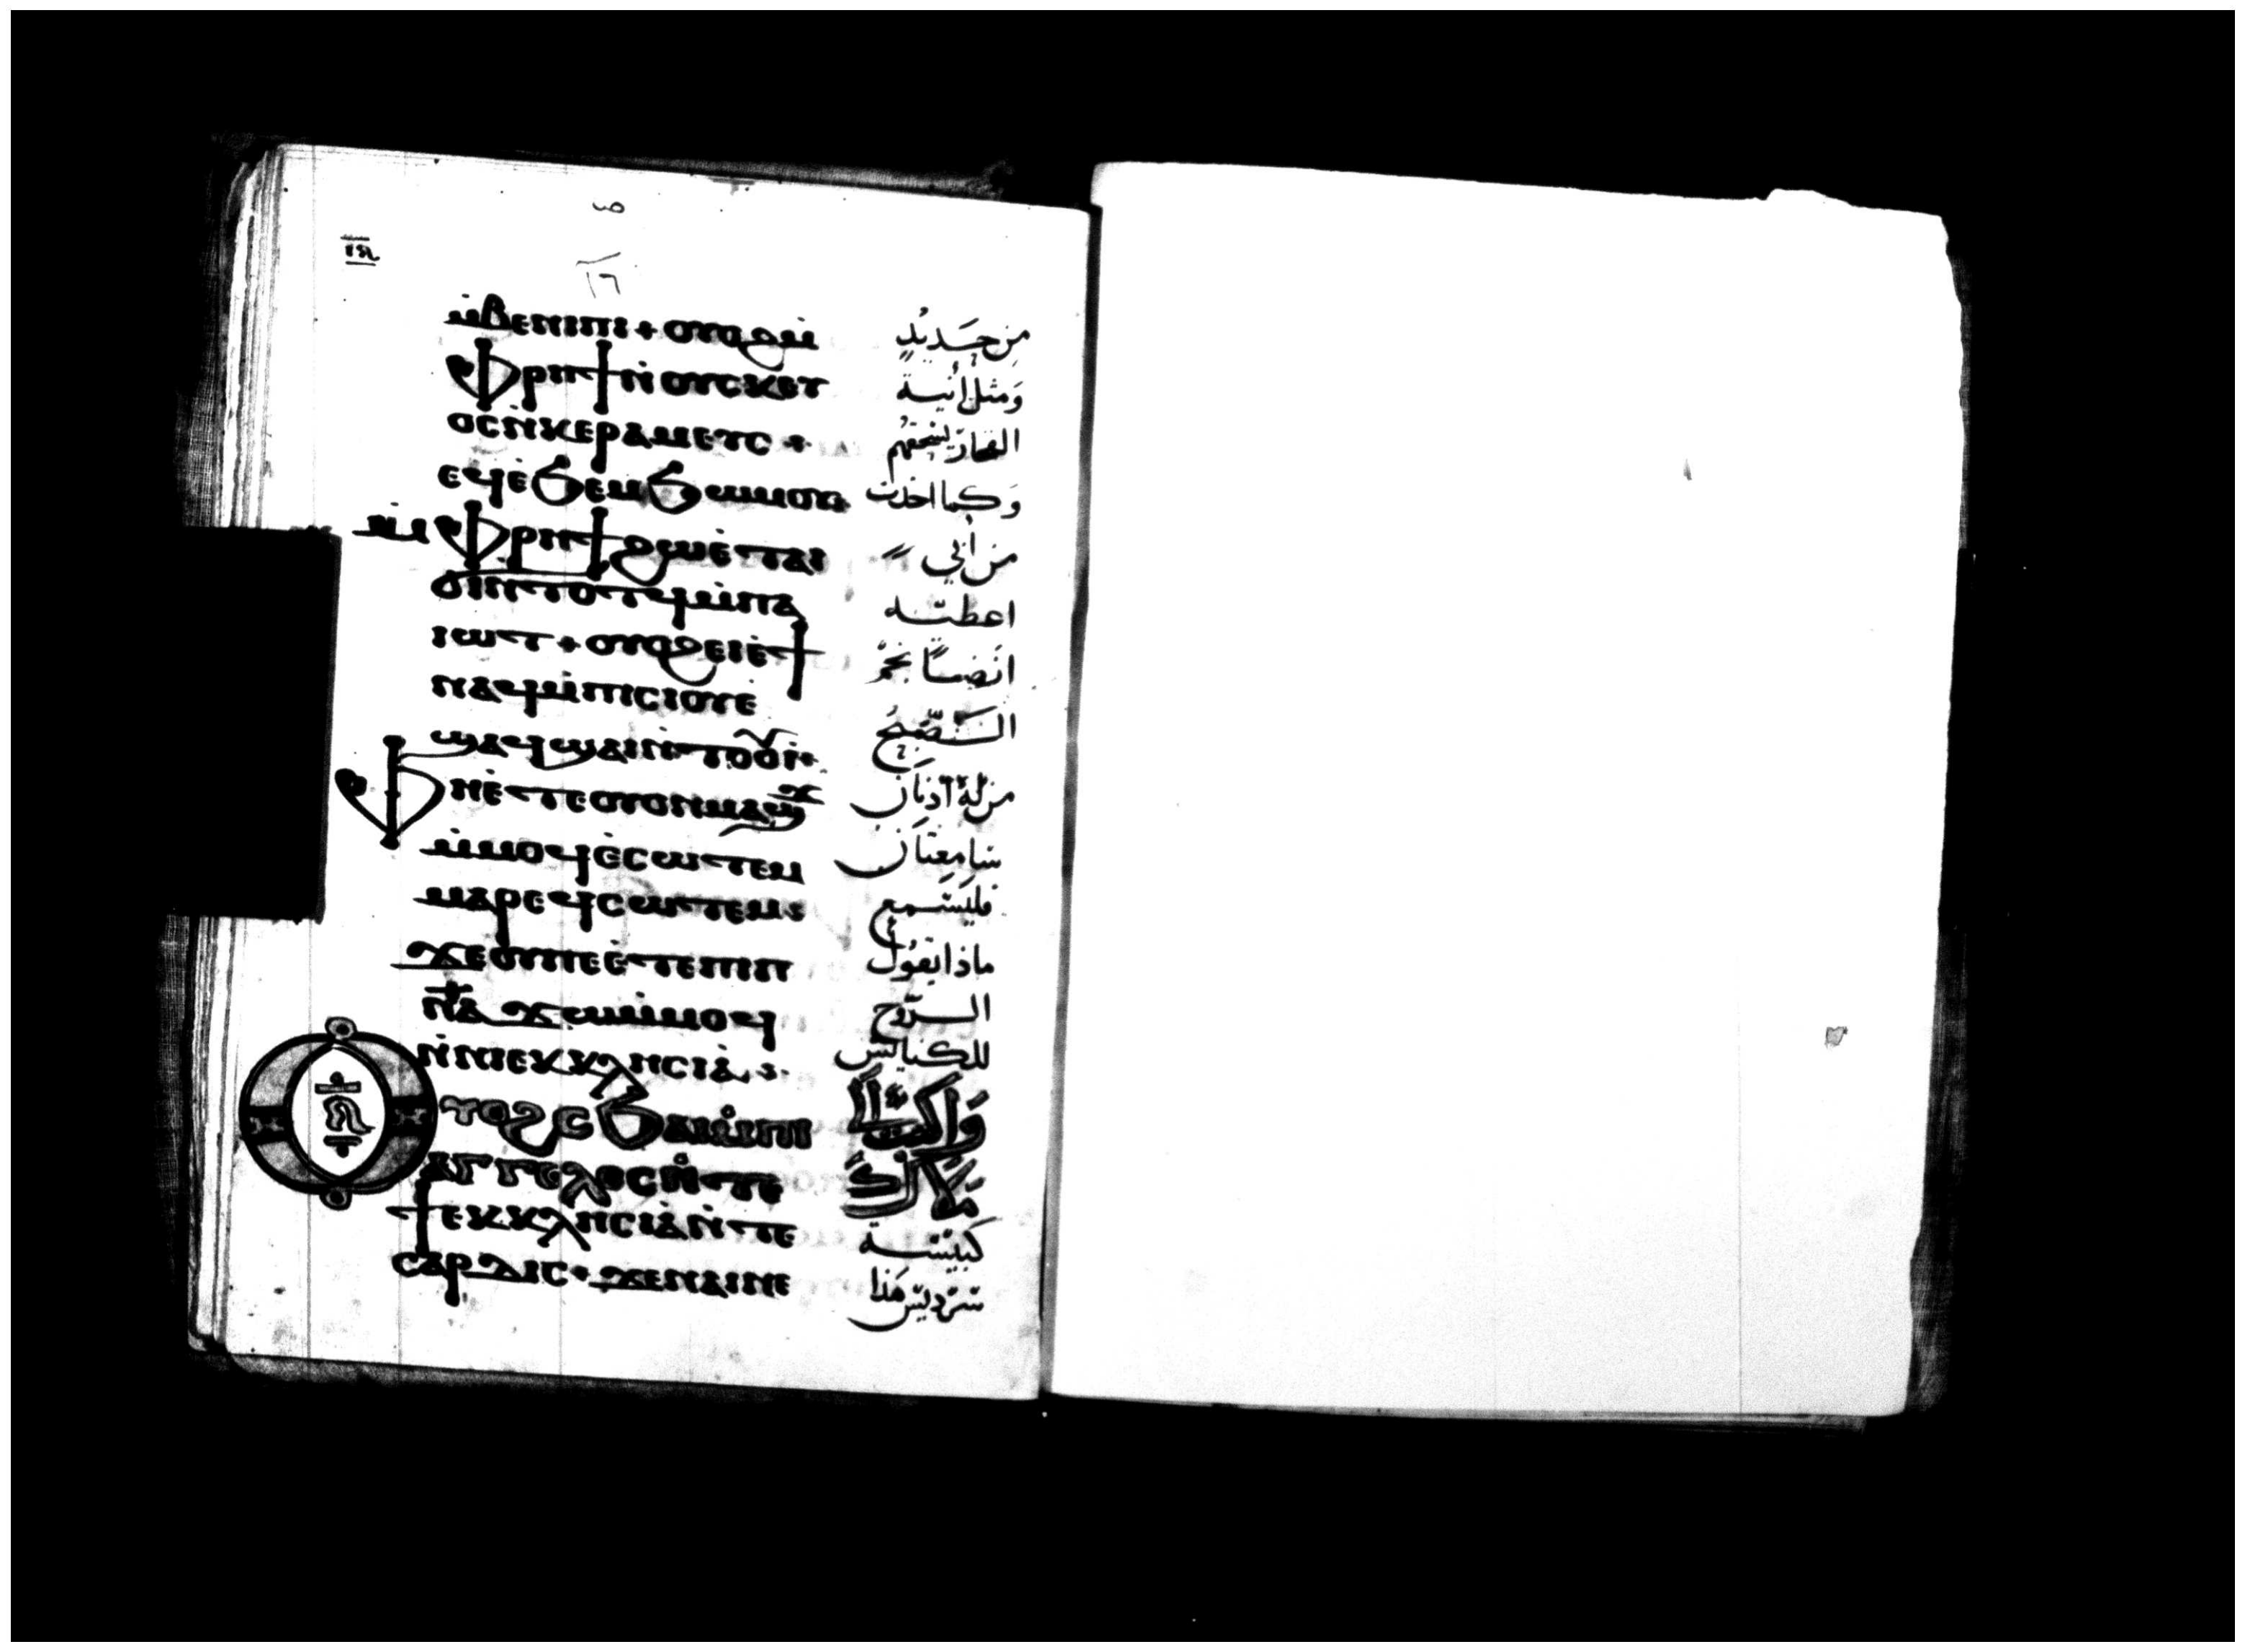 ⲓⲋ
١٦
ⲙ̀ⲃⲉⲛⲓⲡⲓ + ⲟⲩⲟϩ ⲙ̀ من حَديدٍ
ⲫⲣⲏϯ ⲛ̀ⲟⲩⲥⲕⲉⲩ وَمثل أنية
ⲟⲥ ⲛ̀ⲕⲉⲣⲁⲙⲉⲩⲥ + الفخار يسحقهم
ⲉϥⲉ̀ϧⲉⲙϧⲱⲙⲟⲩ وَكما اخدت
ⲙ̀ⲫⲣⲏϯ ϩⲱ ⲉ̀ⲧⲁⲓ من أبي
ϭⲓ ⲛ̀ⲧⲟⲧϥ ⲙ̀ⲡⲁ اعطيه
ⲓⲱⲧ + ⲟⲩⲟϩ ⲉⲓⲉ̀ϯ ايضًا نجم
ⲛⲁϥ ⲙ̀ⲡⲓⲥⲓⲟⲩ ⲉ̀ الصبح
ϣⲁϥϣⲁⲓ ⲛ̀ⲧⲟⲟⲩⲓ̀ من له أدنان
ⲫⲏ ⲉ̀ⲧⲉ ⲟⲩⲟⲛ ⲙⲁϣϫ سامعتان
ⲙ̀ⲙⲟϥ ⲉ̀ⲥⲱⲧⲉⲙ فليسمع
ⲙⲁⲣⲉϥⲥⲱⲧⲉⲙ ماذا يقول
ϫⲉ ⲟⲩ ⲡⲉ ⲉ̀ⲧⲉ ⲡⲓⲡ الروح
ⲛ̅ⲁ̅ ϫⲱ ⲙ̀ⲙⲟϥ للكنايس
ⲛ̀ⲛⲓⲉⲕⲕⲗⲏⲥⲓⲁ̀ وَاكتب الا
ⲋ
ⲟⲩⲟϩ ⲥϧⲁⲓ ⲙ̀ⲡⲓ ملاك
ⲁⲅⲅⲉⲗⲟⲥ ⲛ̀ⲧⲉ كنيسة
ϯⲉⲕⲕⲗⲏⲥⲓⲁ̀ ⲛ̀ⲧⲉ سرديس هَذا
ⲥⲁⲣⲇⲓⲥ + ϫⲉ ⲛⲁⲓ ⲛⲉ